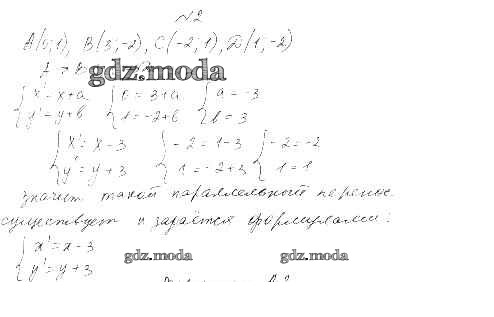 №2
A(0; 1), B(3; -2), C(-2; 1), D(1; -2)
gdz.moda
{ x' = x+a { 0 = 3+a { a = -3
{ y' = y+b { 1 = -2+b { b = 3
{ x' = x-3 { -2 = 1-3 { -2 = -2
{ y' = y+3 { 1 = -2+3 { 1 = 1
значит такой параллельный перенос
существует и задаётся формулами:
{ x' = x-3
{ y' = y+3
gdz.moda gdz.moda